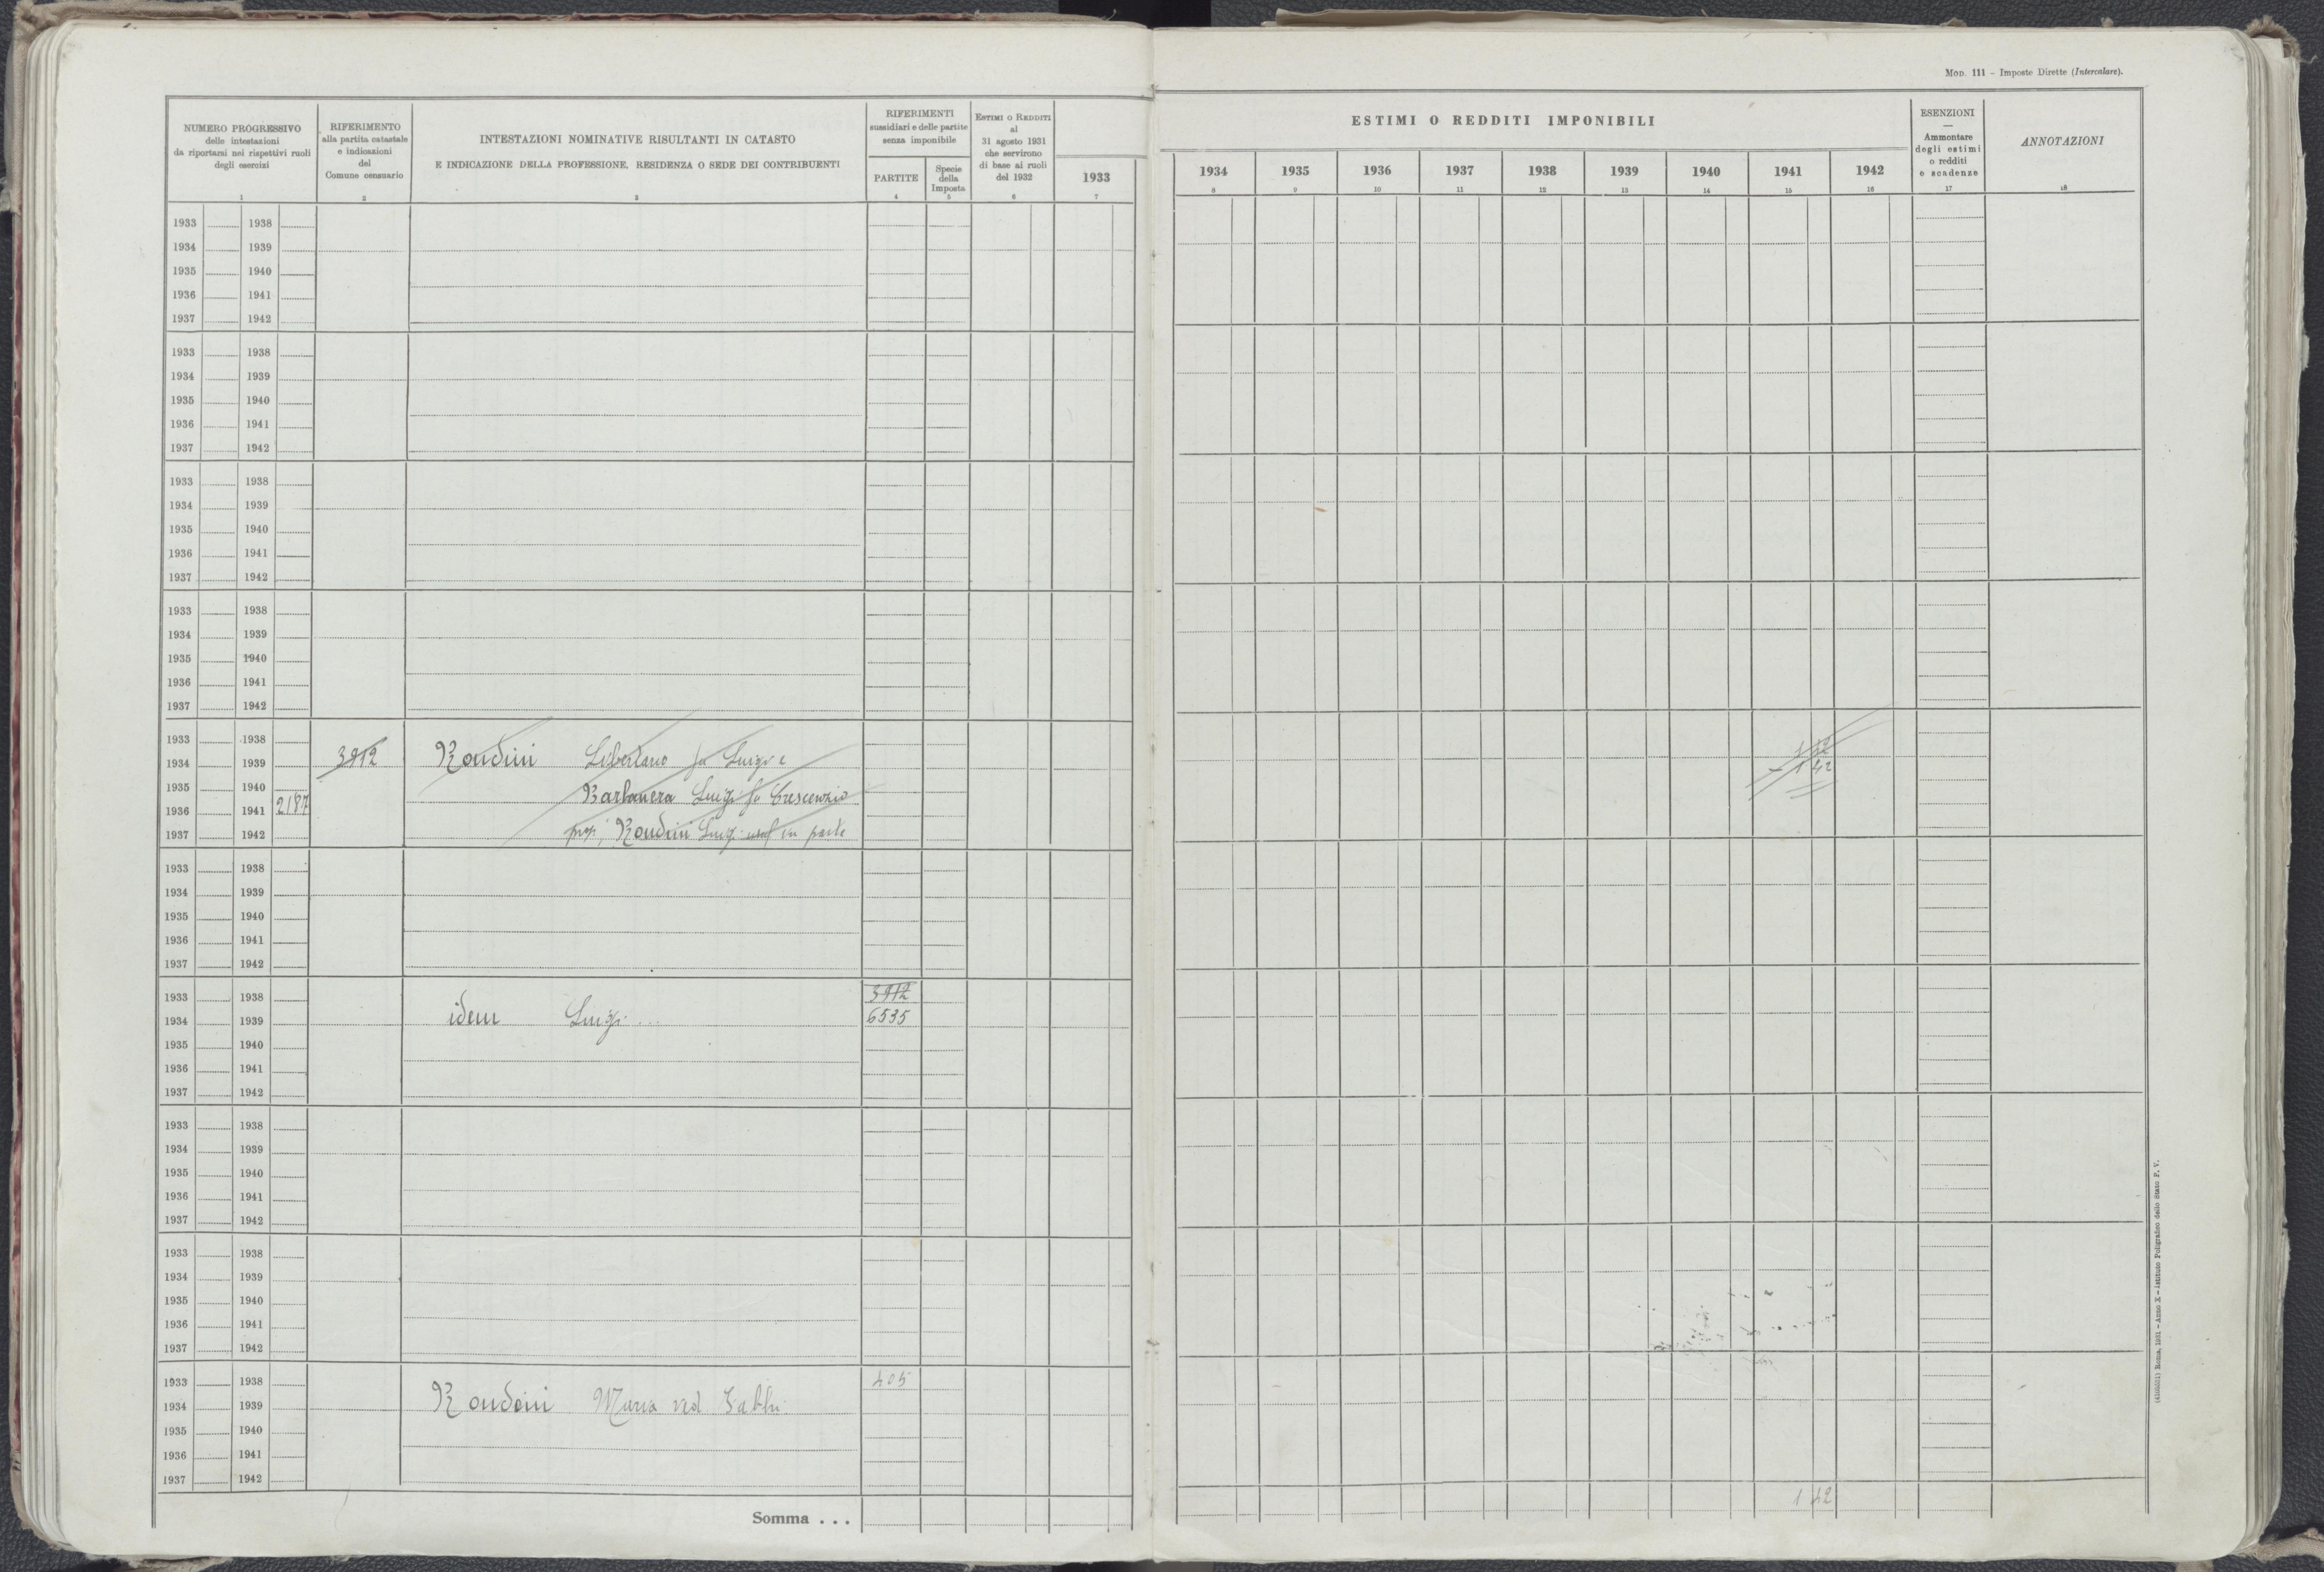 MOD. 111 – Imposte Dirette (Intercalare).
NUMERO PROGRESSIVO
delle intestazioni
da riportarsi nei rispettivi ruoli
degli esercizi
1
RIFERIMENTO
alla partita catastale
e indicazioni
del
Comune censuario
2
INTESTAZIONI NOMINATIVE RISULTANTI IN CATASTO
E INDICAZIONE DELLA PROFESSIONE, RESIDENZA O SEDE DEI CONTRIBUENTI
3
RIFERIMENTI
sussidiari e delle partite
senza imponibile
PARTITE
4
Specie
della
Imposta
5
ESTIMI O REDDITI
al
31 agosto 1931
che servirono
di base ai ruoli
del 1932
6
ESTIMI O REDDITI IMPONIBILI
1933 1934 1935 1936 1937 1938 1939 1940 1941 1942
7 8 9 10 11 12 13 14 15 16
ESENZIONI
—
Ammontare
degli estimi
o redditi
e scadenze
17
ANNOTAZIONI
18
1933 1938
1934 1939
1935 1940
1936 1941
1937 1942
1933 1938
1934 1939
1935 1940
1936 1941
1937 1942
1933 1938
1934 1939
1935 1940
1936 1941
1937 1942
1933 1938
1934 1939
1935 1940
1936 1941
1937 1942
1933 1938
1934 1939 3912 Rondini Libertario fu Luigi e
1935 1940 Barbanera Luigi fu Crescenzio
1936 1941 2187
1937 1942 prop; Rondini Luigi usuf in parte
1 42
1933 1938
1934 1939
1935 1940
1936 1941
1937 1942
1933 1938 3912
1934 1939 idem Luigi ... 6535
1935 1940
1936 1941
1937 1942
1933 1938
1934 1939
1935 1940
1936 1941
1937 1942
1933 1938
1934 1939
1935 1940
1936 1941
1937 1942
1933 1938 405
1934 1939 Rondini Maria ved.
1935 1940
1936 1941
1937 1942
Somma . . . 1 42
Roma, 1931 – Anno X – Istituto Poligrafico dello Stato P. V.